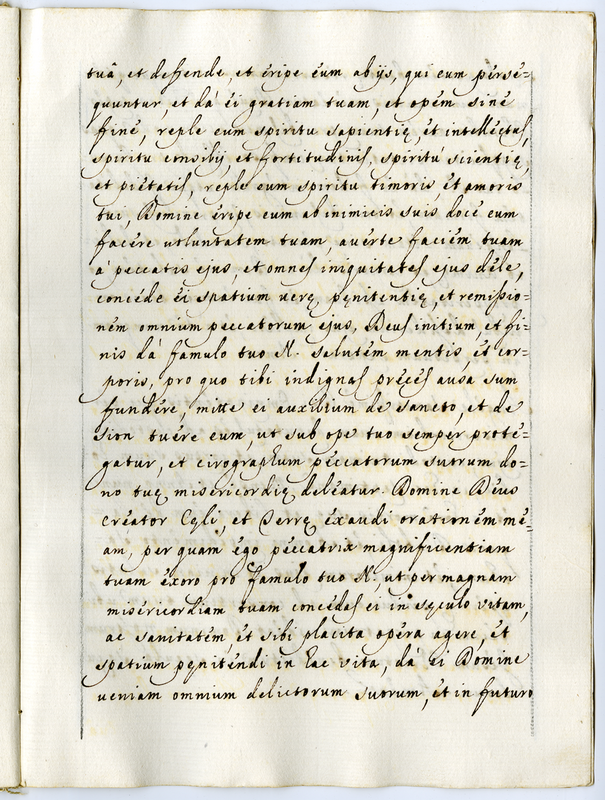 tuâ, et defende, et éripe éum abijs, qui eum pérse=
quuntur, et dá éi gratiam tuam, et opém siné
finé, reple eum spiritu sapientię, ét intelléctus,
spiritu consilij, et fortitudinis, spiritú scientię,
et piétatis, replé eum spiritu timoris, ét amoris
tui, Domine éripe eum ab inimicis suis docé eum
facére uoluntatem tuam, auérte faciém tuam
á peccatis ejus, et omnes iniquitatés ejus déle,
concéde éi spatium uerę, pęnitentię, et remissio=
ném omnium peccatorum ejus, Deus initium, et fi=
nis dá famulo tuo N. salutém mentis, ét cor=
poris, pro quo tibi indignas précés ausa sum
fundére, mitte ei auxilium de sancto, et de
sion tuére eum, ut sub ope tuo sempęr proté=
gatur, et cirographum péccatorum suorum do=
no tuę misericordię deléatur. Domine Déus
créator Cęli, et Terrę éxaudi orationém mé=
am, per quam égo péccatrix magnificentiam
tuam éxoro pró famulo tuo N., ut per magnam
miséricordiam tuam concédas éi in sęculo vitam,
ac sanitatém, ét sibi placita opéra agere, ét
spatium pęniténdi in hac vita, dá éi Domine
ueniam omnium delictorum suorum, ét in futuro